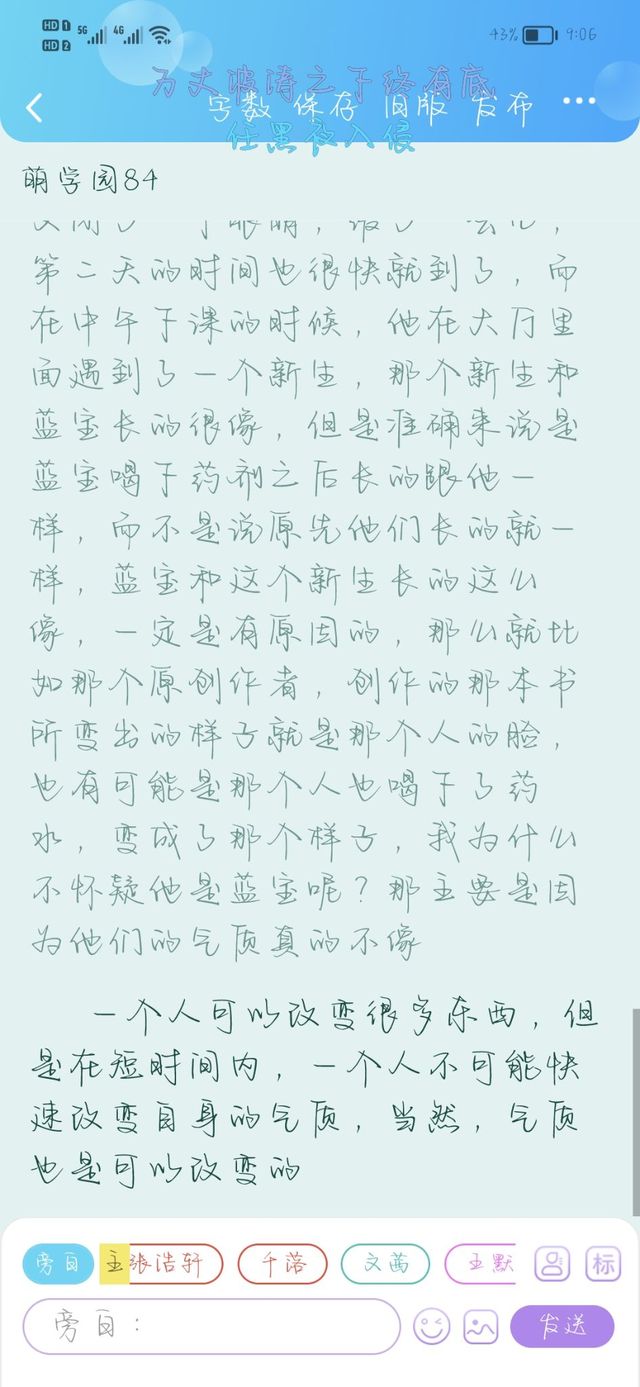 HD 1 5G 4G
HD 2
43% 9:06
万丈波涛之下终有底
字数 保存 旧版 发布
任黑夜入侵
萌学园84
第二天的时间也很快就到了，而
在中午下课的时候，他在大厅里
面遇到了一个新生，那个新生和
蓝宝长的很像，但是准确来说是
蓝宝喝下药剂之后长的跟他一
样，而不是说原先他们长的就一
样，蓝宝和这个新生长的这么
像，一定是有原因的，那么就比
如那个原创作者，创作的那本书
所变出的样子就是那个人的脸，
也有可能是那个人也喝下了药
水，变成了那个样子，我为什么
不怀疑他是蓝宝呢？那主要是因
为他们的气质真的不像
一个人可以改变很多东西，但
是在短时间内，一个人不可能快
速改变自身的气质，当然，气质
也是可以改变的
旁白 主 张浩轩 千落 文茜 王默 标
旁白：
发送